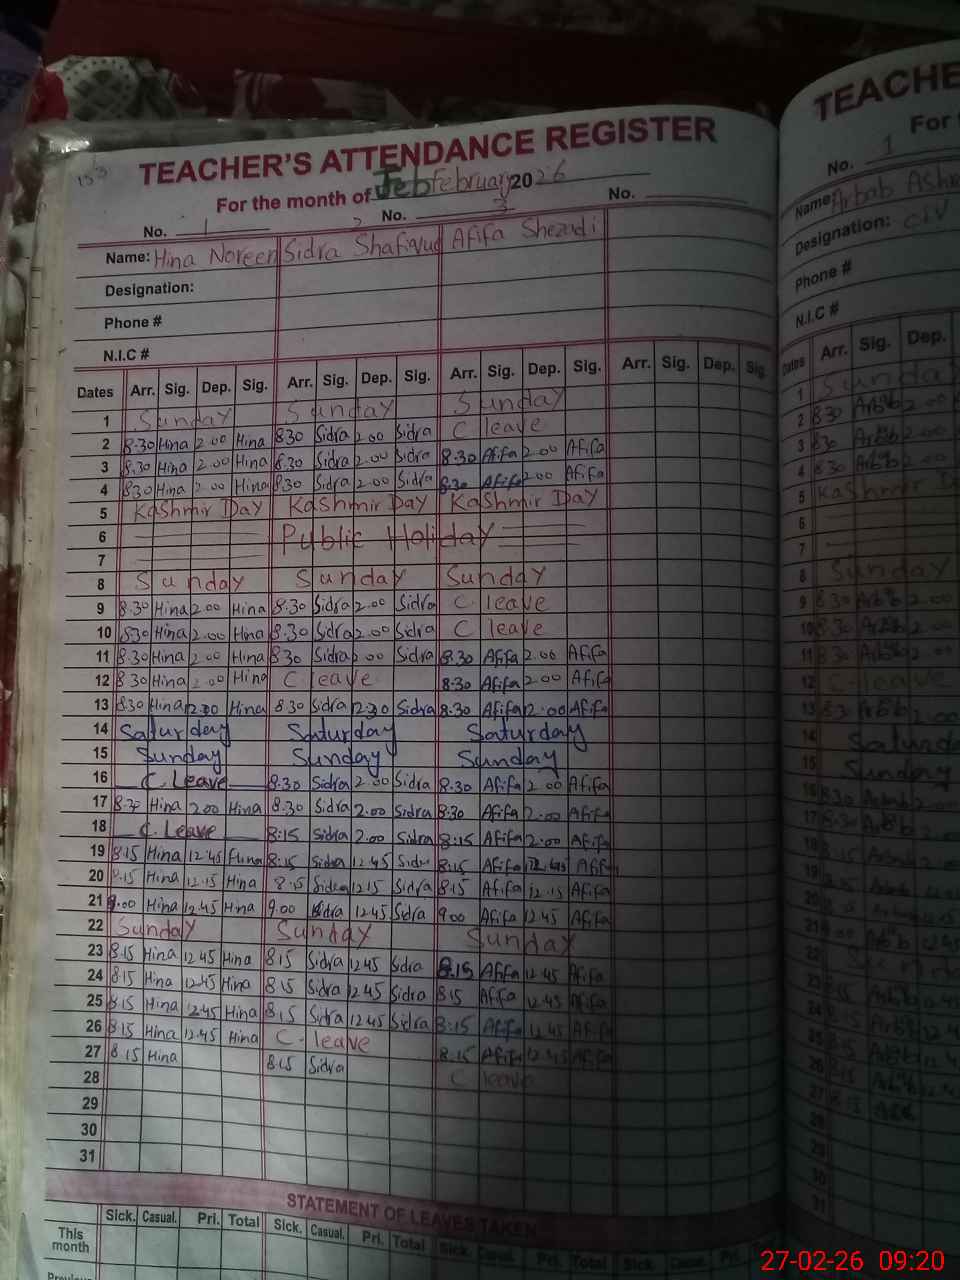 153
TEACHER'S ATTENDANCE REGISTER
For the month of Feb February 2026
No. 1 2 No. 3 No.
Name: Hina Noreen Sidra Shafique Afifa Shezadi
Designation:
Phone #
N.I.C #
Dates Arr. Sig. Dep. Sig. Arr. Sig. Dep. Sig. Arr. Sig. Dep. Sig. Arr. Sig. Dep. Sig.
1 Sunday Sunday Sunday
2 8.30 Hina 2.00 Hina 830 Sidra 2.00 Sidra C leave
3 8.30 Hina 2.00 Hina 8.30 Sidra 2.00 Sidra 8.30 Afifa 2.00 Afifa
4 830 Hina 2.00 Hina 8.30 Sidra 2.00 Sidra 8.30 Afifa 2.00 Afifa
5 Kashmir Day Kashmir Day Kashmir Day
6 Public Holiday
7
8 Sunday Sunday Sunday
9 8.30 Hina 2.00 Hina 8.30 Sidra 2.00 Sidra C. leave
10 830 Hina 2.00 Hina 8.30 Sidra 2.00 Sidra C leave
11 8.30 Hina 2.00 Hina 8.30 Sidra 2.00 Sidra 8.30 Afifa 2.00 Afifa
12 8.30 Hina 2.00 Hina C leave 8.30 Afifa 2.00 Afifa
13 8.30 Hina 12.30 Hina 8.30 Sidra 12.30 Sidra 8.30 Afifa 12.00 Afifa
14 Saturday Saturday Saturday
15 Sunday Sunday Sunday
16 C. Leave 8.30 Sidra 2.00 Sidra 8.30 Afifa 2.00 Afifa
17 8.30 Hina 2.00 Hina 8.30 Sidra 2.00 Sidra 8.30 Afifa 2.00 Afifa
18 C. Leave 8:15 Sidra 2.00 Sidra 8:15 Afifa 2.00 Afifa
19 8.15 Hina 12.45 Hina 8:15 Sidra 12.45 Sidra 8:15 Afifa 12.45 Afifa
20 8.15 Hina 12.15 Hina 8.15 Sidra 12.15 Sidra 8.15 Afifa 12.15 Afifa
21 9.00 Hina 12.45 Hina 9.00 Sidra 12.45 Sidra 9.00 Afifa 12.45 Afifa
22 Sunday Sunday Sunday
23 8.15 Hina 12.45 Hina 8.15 Sidra 12.45 Sidra 8.15 Afifa 12.45 Afifa
24 8.15 Hina 12.45 Hina 8.15 Sidra 12.45 Sidra 8.15 Afifa 12.45 Afifa
25 8.15 Hina 12.45 Hina 8.15 Sidra 12.45 Sidra 8:15 Afifa 12.45 Afifa
26 8.15 Hina 12.45 Hina C. leave 8.15 Afifa 12.45 Afifa
27 8.15 Hina 8.15 Sidra C leave
28
29
30
31
STATEMENT OF LEAVES TAKEN
Sick. Casual. Pri. Total Sick. Casual. Pri. Total Sick. Casual. Pri. Total Sick. Casual. Pri.
This month
TEACHE
For
No. 1
Name: Arbab Ash
Designation:
Phone #
N.I.C #
Dates Arr. Sig. Dep.
27-02-26 09:20